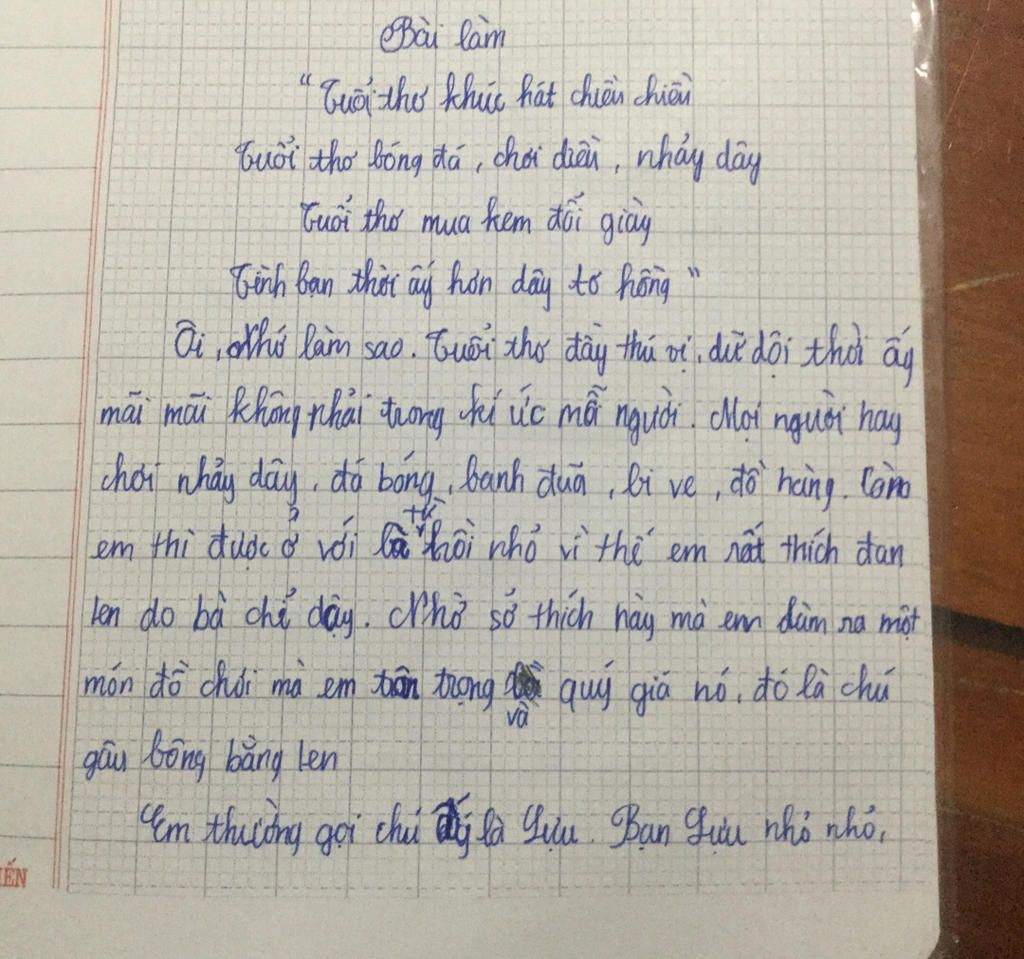 Bài làm
"Tuổi thơ khúc hát chiều chiều
Tuổi thơ bóng đá, chơi diều, nhảy dây
Tuổi thơ mua kem đổi giày
Tình bạn thời ấy hơn dây tơ hồng"
Ôi, nhớ làm sao. Tuổi thơ đầy thú vị, dữ dội thời ấy
mãi mãi không phải trong kí ức mỗi người. Mọi người hay
chơi nhảy dây, đá bóng, banh đũa, bi ve, đồ hàng. Còn
em thì được ở với bà từ hồi nhỏ vì thế em rất thích đan
len do bà chỉ dậy. Nhờ sở thích này mà em đàm ra một
món đồ chơi mà em trân trọng và quý giá nó, đó là chú
gấu bông bằng len
Em thường gọi chú ấy là Lựu. Bạn Lựu nhỏ nhỏ,
ẾN